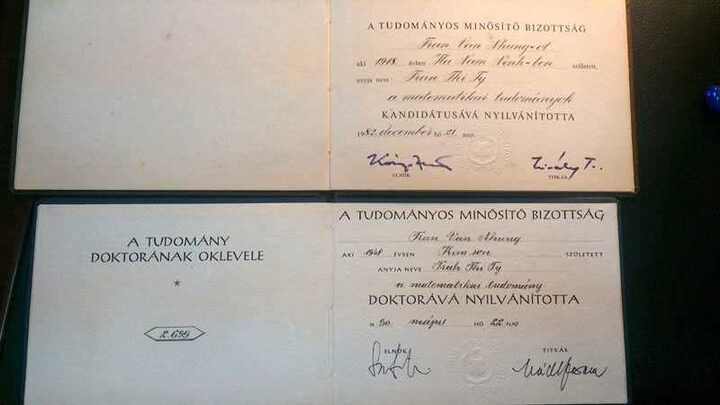 A TUDOMÁNYOS MINŐSÍTŐ BIZOTTSÁG
Tran Van Nhung-ot
aki 1948 évben Ha Nam Ninh-ben született,
anyja neve Tran Thi Ty
a matematikai tudományok
KANDIDÁTUSÁVÁ NYILVÁNÍTOTTA
1982. december hó 21. nap
ELNÖK
TITKÁR
A TUDOMÁNY
DOKTORÁNAK OKLEVELE
*
2.639
A TUDOMÁNYOS MINŐSÍTŐ BIZOTTSÁG
Tran Van Nhung
AKI 1948 ÉVBEN SZÜLETETT
ANYJA NEVE Thi Ty
a matematikai tudomány
DOKTORÁVÁ NYILVÁNÍTOTTA
90. május HÓ 22. NAP
ELNÖK
TITKÁR